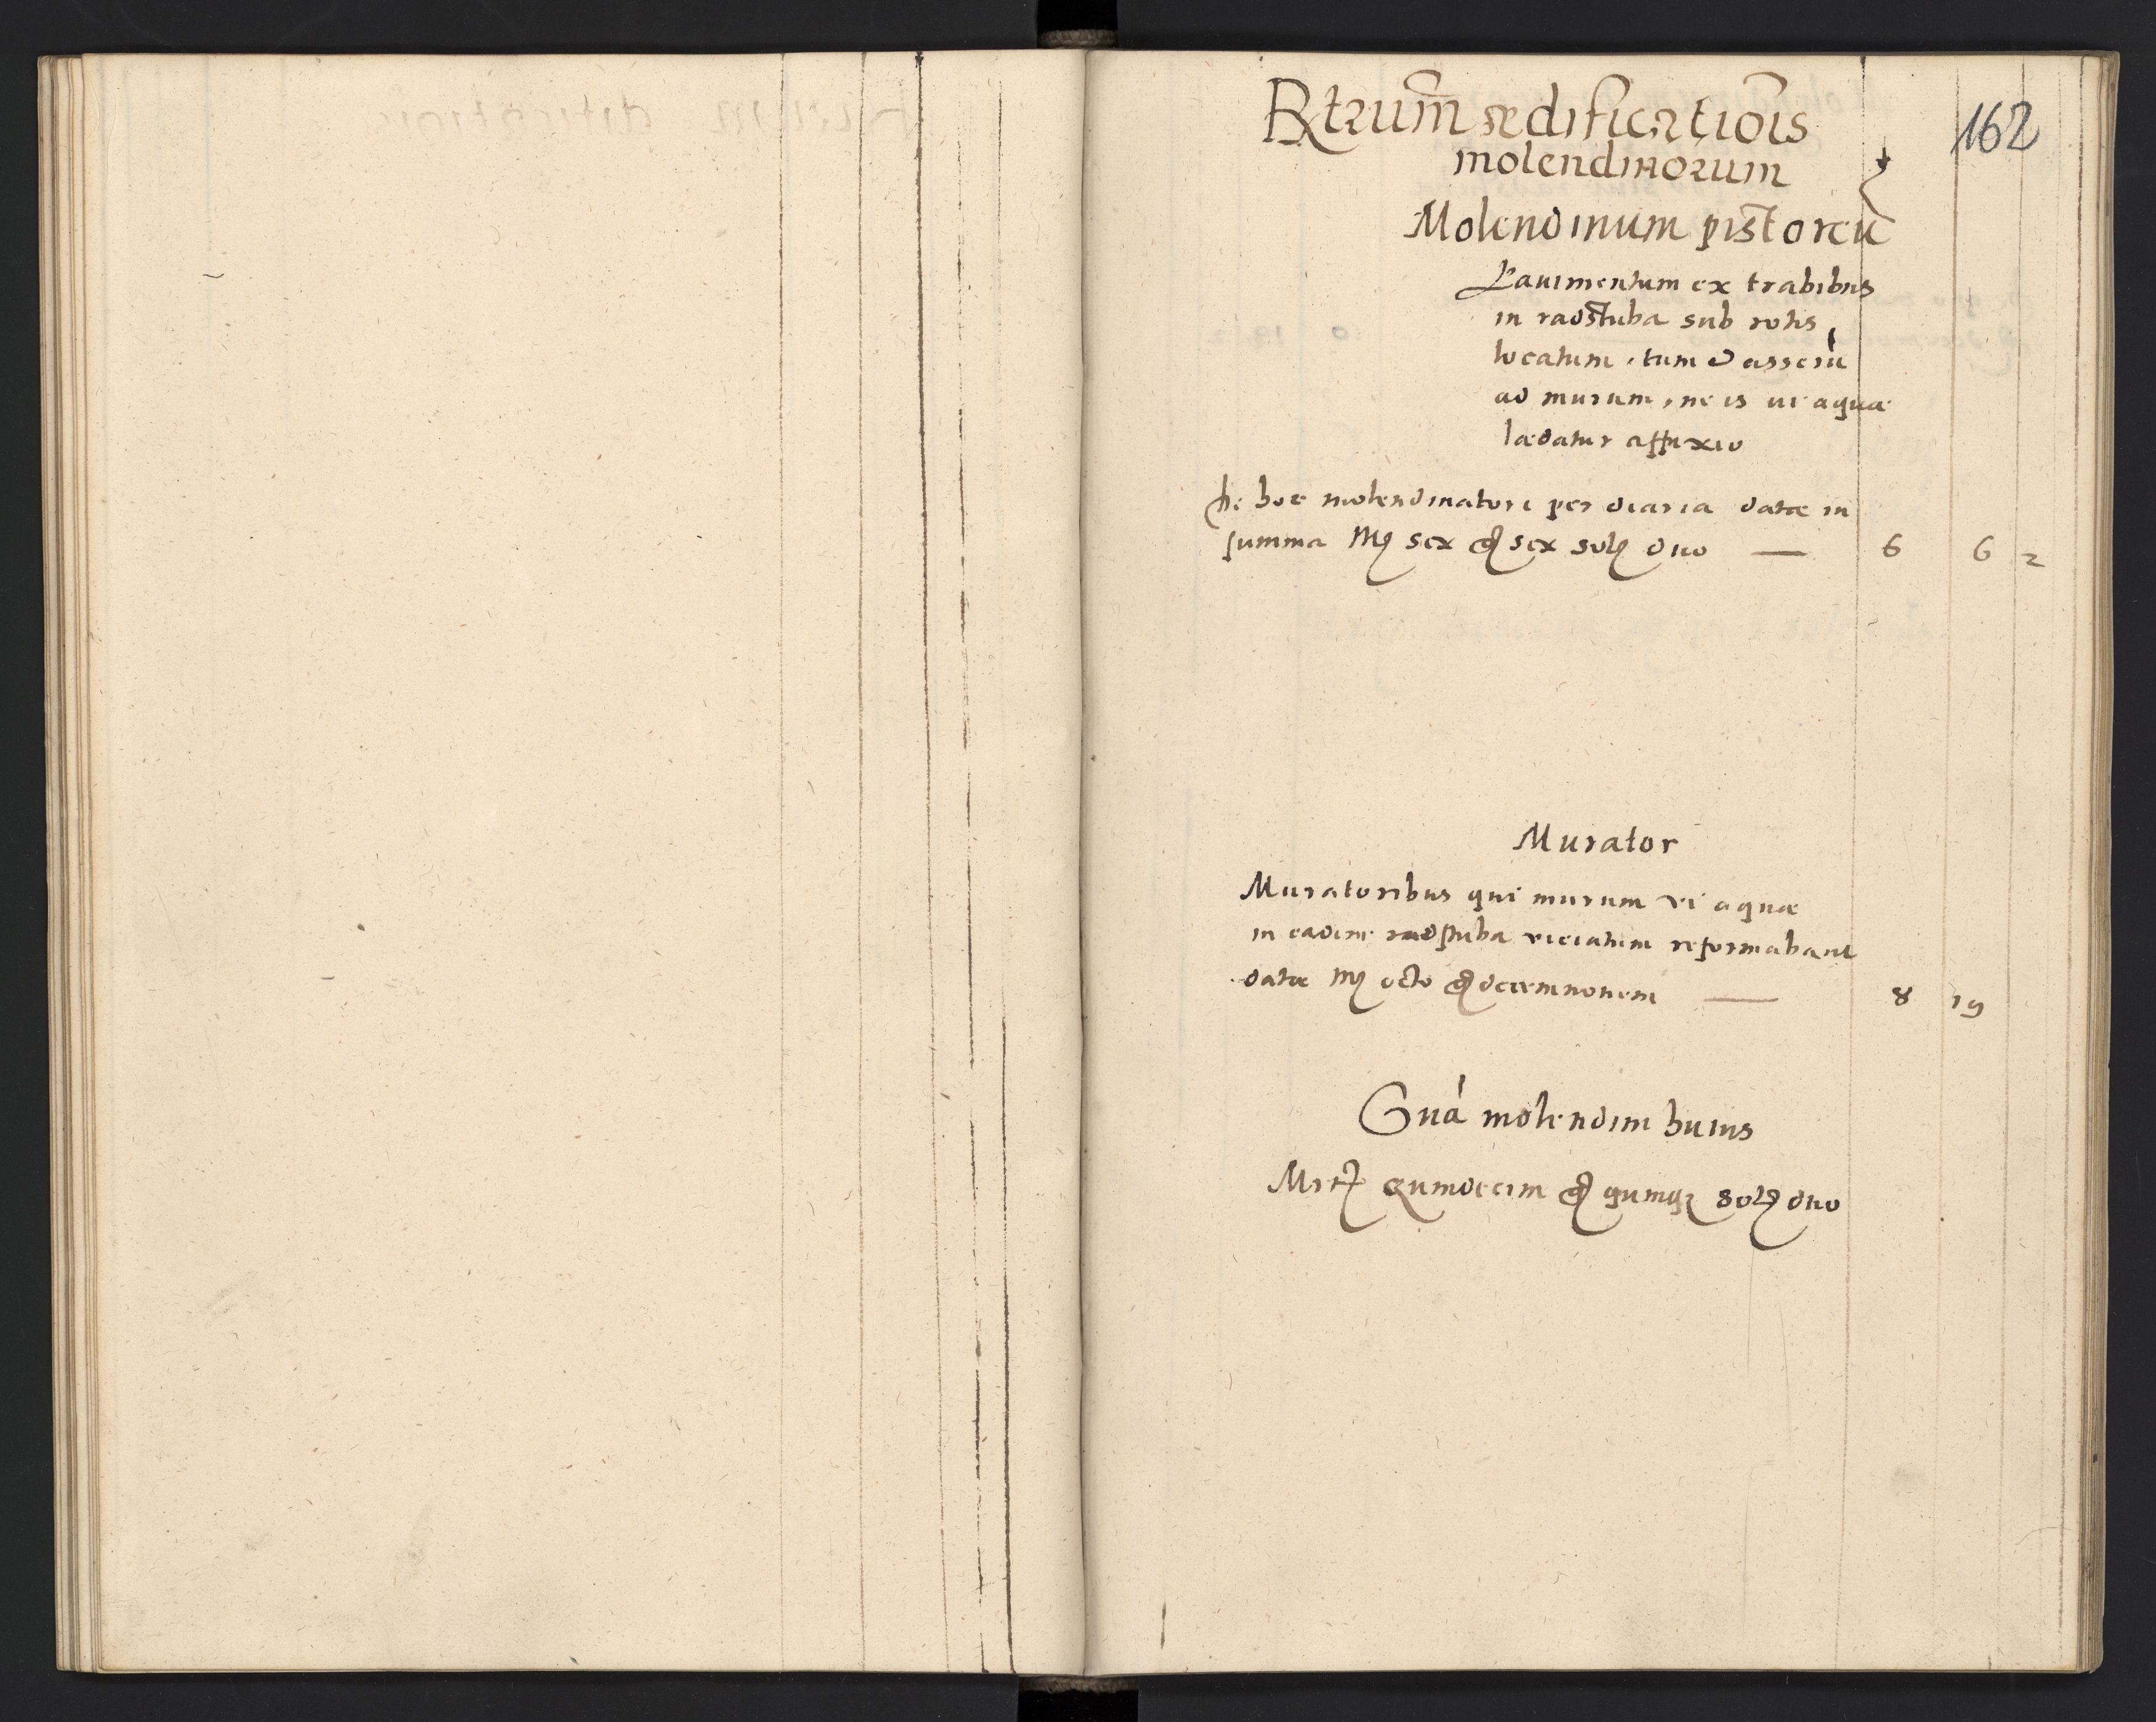 Rursum ædificatiõis
162
molendinorum
Molendinum pistoreũ
Pauimentum ex trabibus
in radstuba sub rotis
locatum, tum & asserũ
ad murum, ne is ui aquæ
lædatur affixio
hoc molendinatori per diaria datæ in
summa Mr sex gr sex sol duo — 6 6 2
Murator
Muratoribus qui murum vi aquæ
in eadem radstuba viciatum reformabant
datæ Mr octo gr decemnouem — 8 19
Suma molendini huius
Mrc quindecim gr quinq sol duo